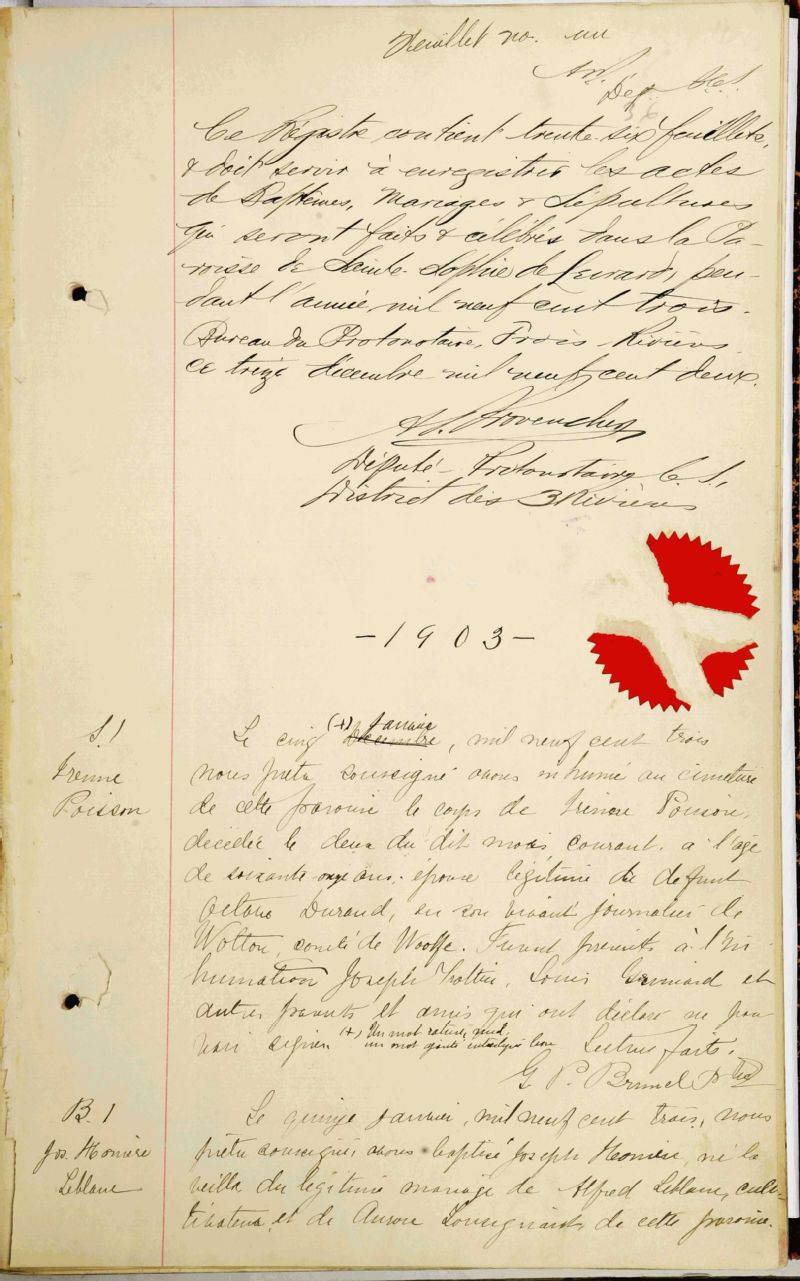 Feuillet no. un
Dép.
36
Ce Régistre contient trente-six feuillets,
& doit servir à enregistrer les actes
de Baptêmes, Mariages & Sépultures
qui seront faits & célébrés dans la Pa-
roisse de Sainte-Sophie de Levrard, pen-
dant l'année mil neuf cent trois.
Bureau du Protonotaire, Trois-Rivières
ce treize décembre mil neuf cent deux.
Provencher
Député-Protonotaire C. S.,
District des 3 Rivières
- 1903 -
S. 1
Irenne
Poisson
(+) Janvier
Le cinq Décembre, mil neuf cent trois
nous prêtre soussigné avons inhumé au cimetière
de cette paroisse le corps de Poisson,
décédée le deux du dit mois courant, a l'age
de soixante onze ans, épouse légitime de defunt
Octave Durand, en son vivant journalier de
Wotton, comté de Wolfe. Furent présents à l'in-
humation Joseph Trottier, Louis et
autres parents et amis qui ont déclaré ne pou-
voir signer (+) Un mot raturé nul,
un mot ajouté bon Lecture faite.
G. P. Brunel Ptre
B. 1
Jos. Homère
Leblanc
Le quinze Janvier, mil neuf cent trois, nous
prêtre soussigné, avons baptisé Joseph Homère, né la
veille du légitime mariage de Alfred Leblanc, cul-
tivateur, et de Aurore Lonsignant de cette paroisse.